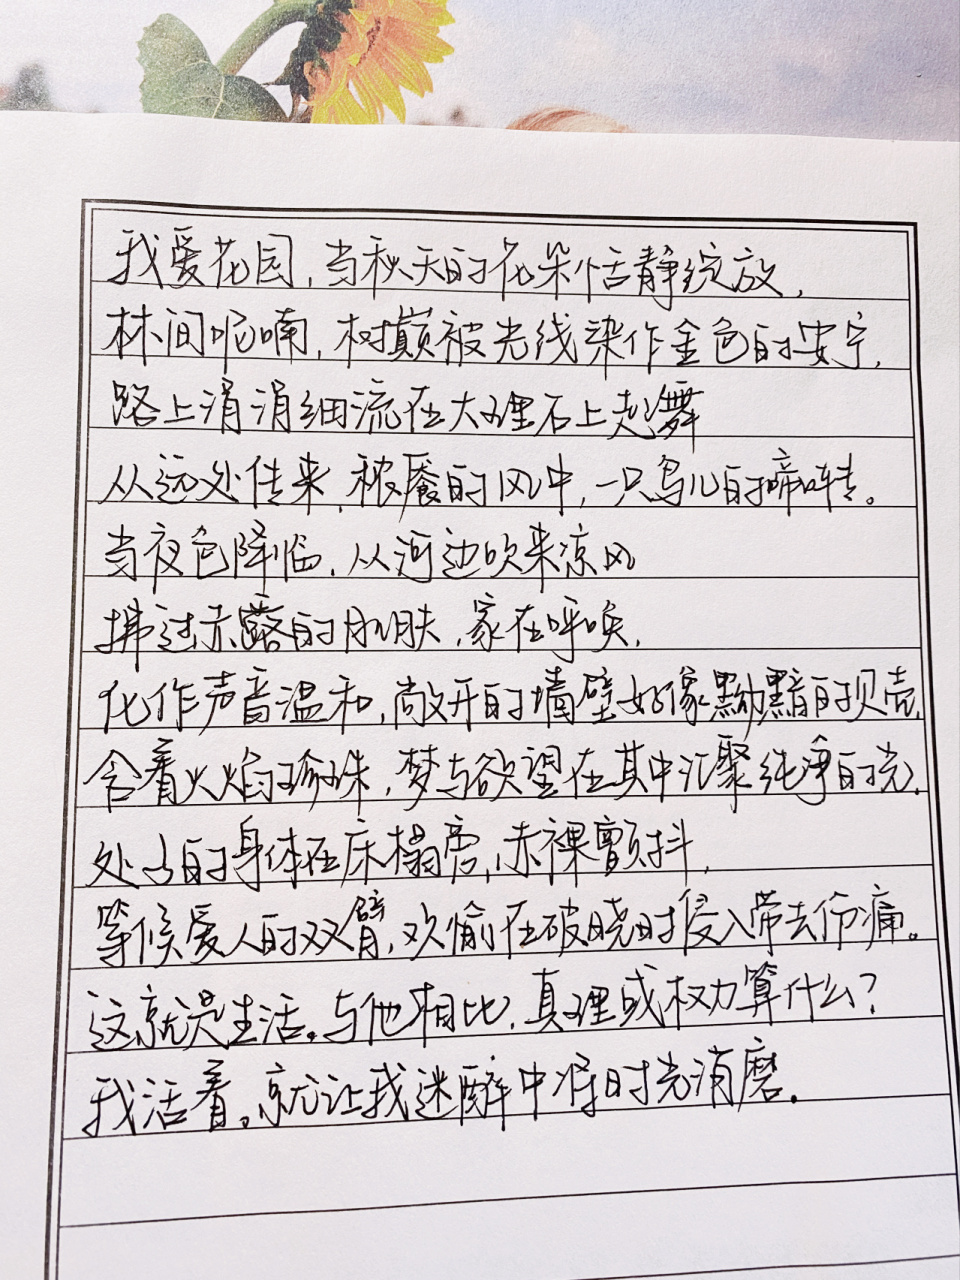 我爱花园，当秋天的花朵恬静绽放，
林间呢喃，树巅被光线染作金色的安宁，
路上涓涓细流在大理石上起舞
从远处传来，被餍的风中，一只鸟儿的啼啭。
当夜色降临，从河边吹来凉风
拂过赤露的肌肤，家在呼唤，
化作声音温和，敞开的墙壁好像黝黯的贝壳，
含着火焰的珍珠，梦与欲望在其中汇聚纯净的光，
处子的身体在床榻旁，赤裸颤抖，
等候爱人的双臂，欢愉在破晓时侵入带去伤痛。
这就是生活。与他相比，真理或权力算什么？
我活着。就让我迷醉中将时光消磨。